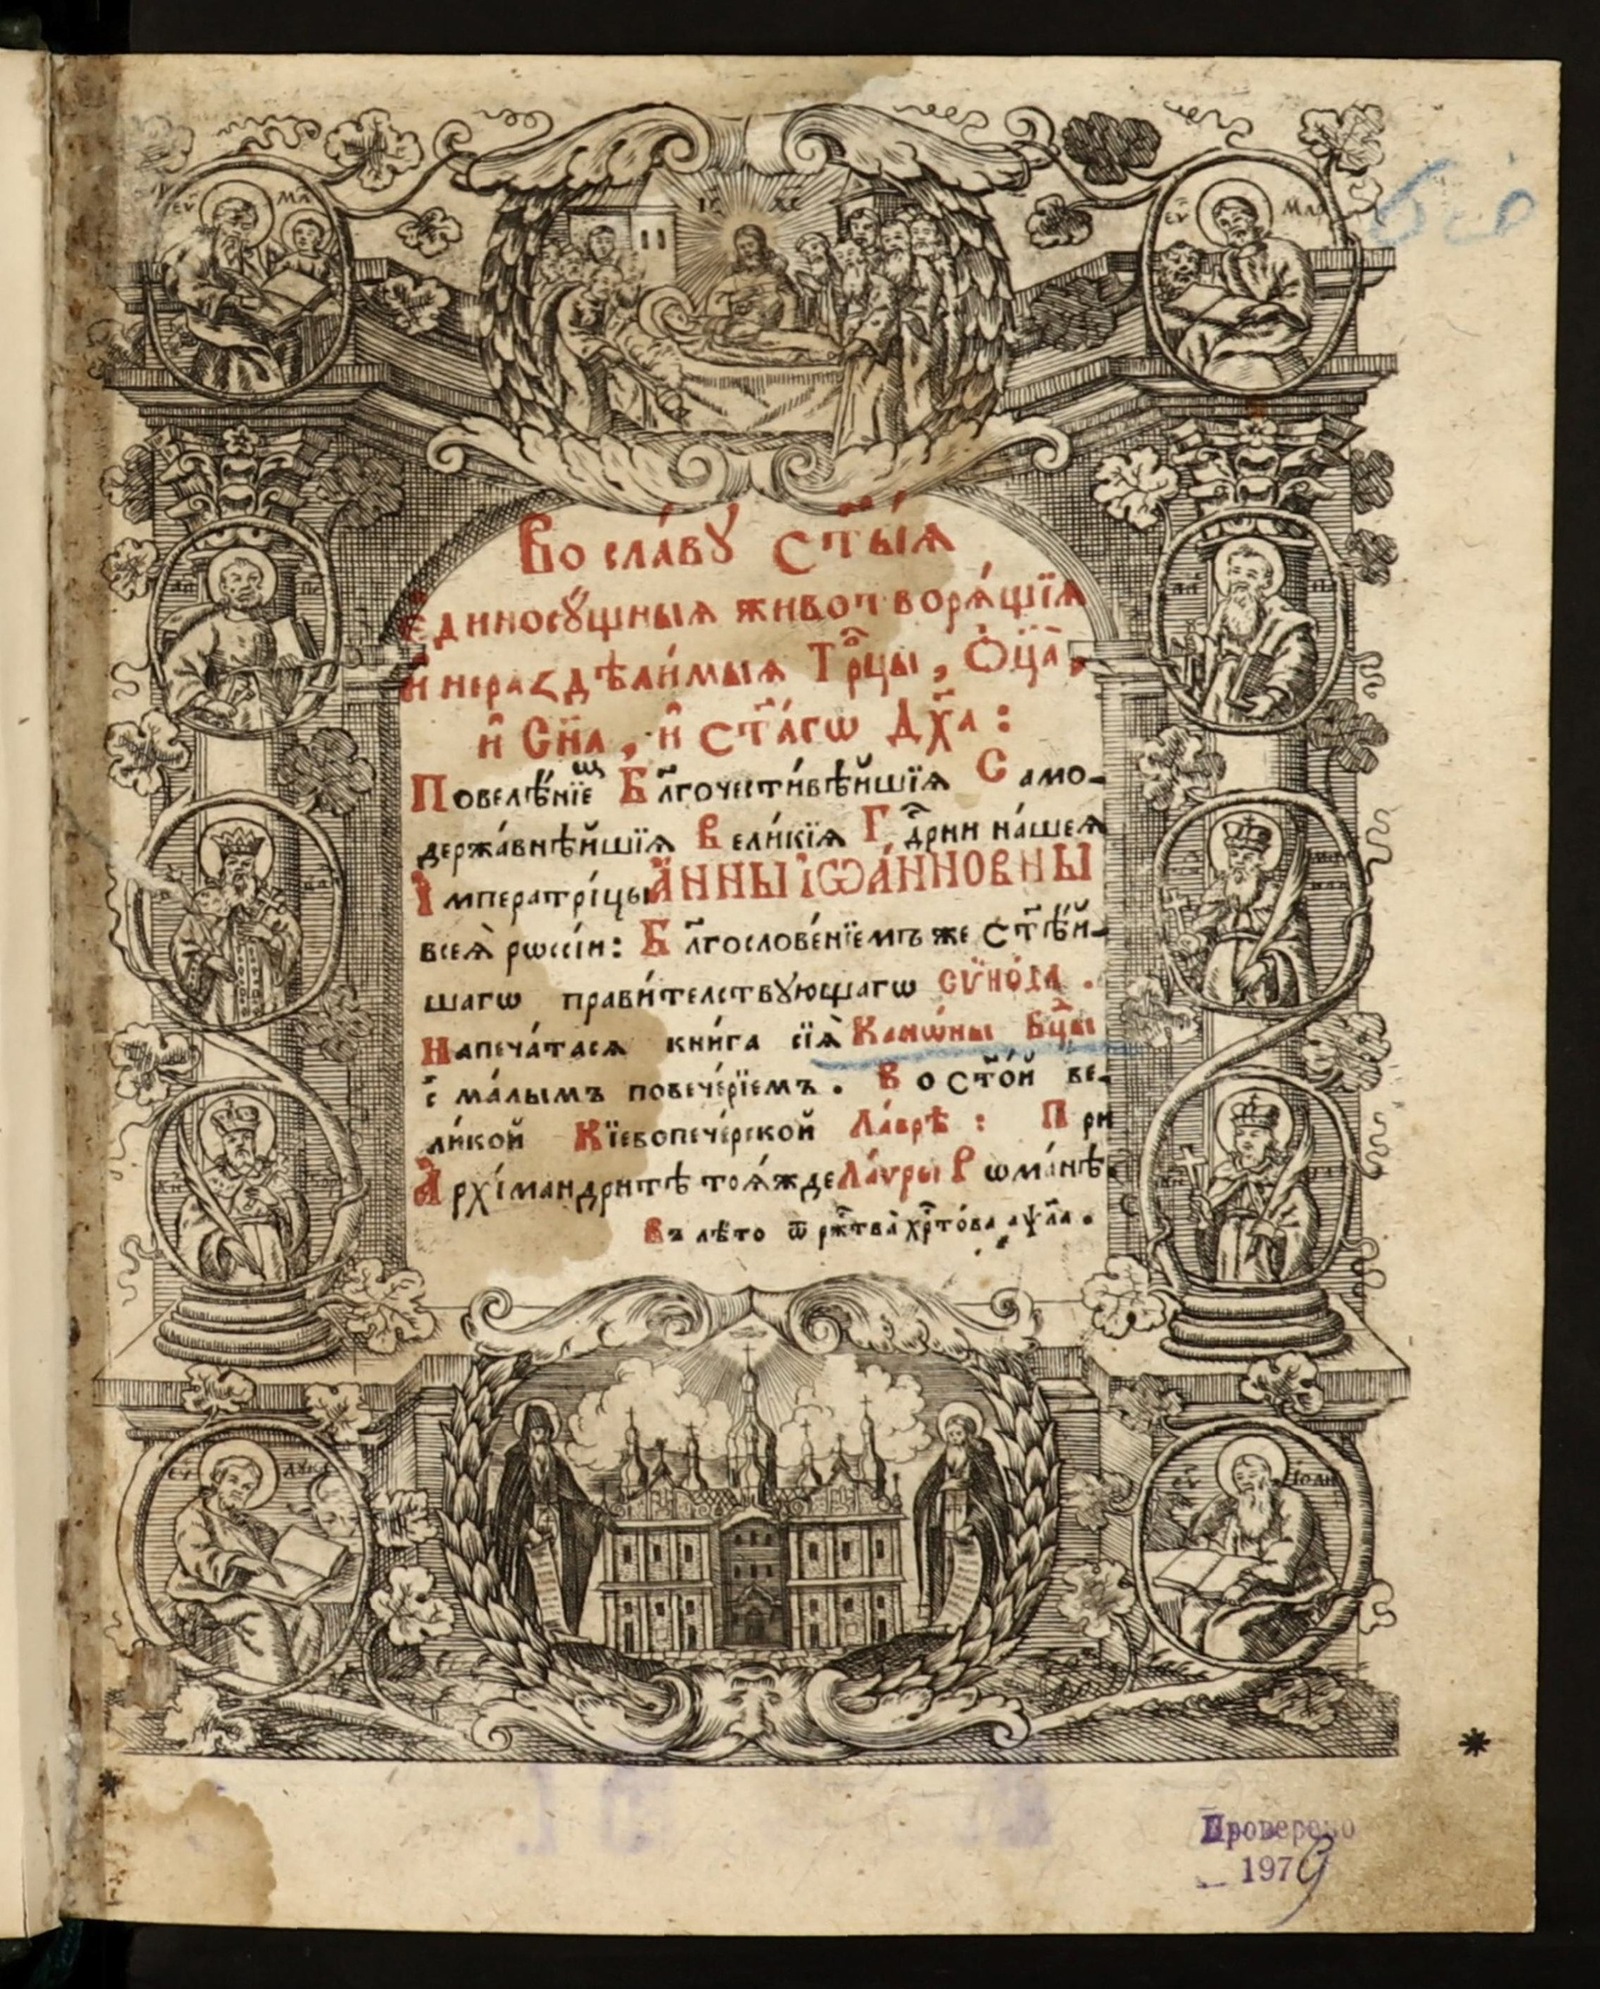 Во сла́вꙋ ст҃ы́ѧ
є҆диносꙋ́щныѧ животворѧ́щїѧ
и҆ нераздѣли́мыѧ Трⷪ҇цы, Ѻ҆ц҃а̀,
и҆ Сн҃а, и҆ ст҃а́гѡ Дх҃а:
Повелѣ́нїемъ Бл҃гочести́вѣйшїѧ Само-
держа́внѣйшїѧ Вели́кїѧ Гдⷭ҇рни на́шеѧ
І҆мператрі́цы А҆́ННЫ І҆ѠА́ННОВНЫ
всеѧ̀ рѡссі́и: Бл҃гослове́нїемъ же Ст҃ѣ́й-
шагѡ прави́телствꙋющагѡ сѵно́да.
Напеча́тасѧ кни́га сїѧ̀ Канѡ́ны Бцⷣы
с̾ ма́лымъ повече́рїемъ. Во ст҃о́й ве-
ли́кой Кїевопече́рской Ла́врѣ: При
А҆рхімандритѣ тоѧ́жде Ла́ѵры Рѡма́нѣ.
Въ лѣто ѿ ржⷭ҇тва̀ хрⷭ҇то́ва ҂аѱл҃а.
ІС ХС
ЄѴ МАⷴ
ЄѴ МАⷬ
ЄѴ ЛУКА
ЄѴ ІОАН
Проверено
1979